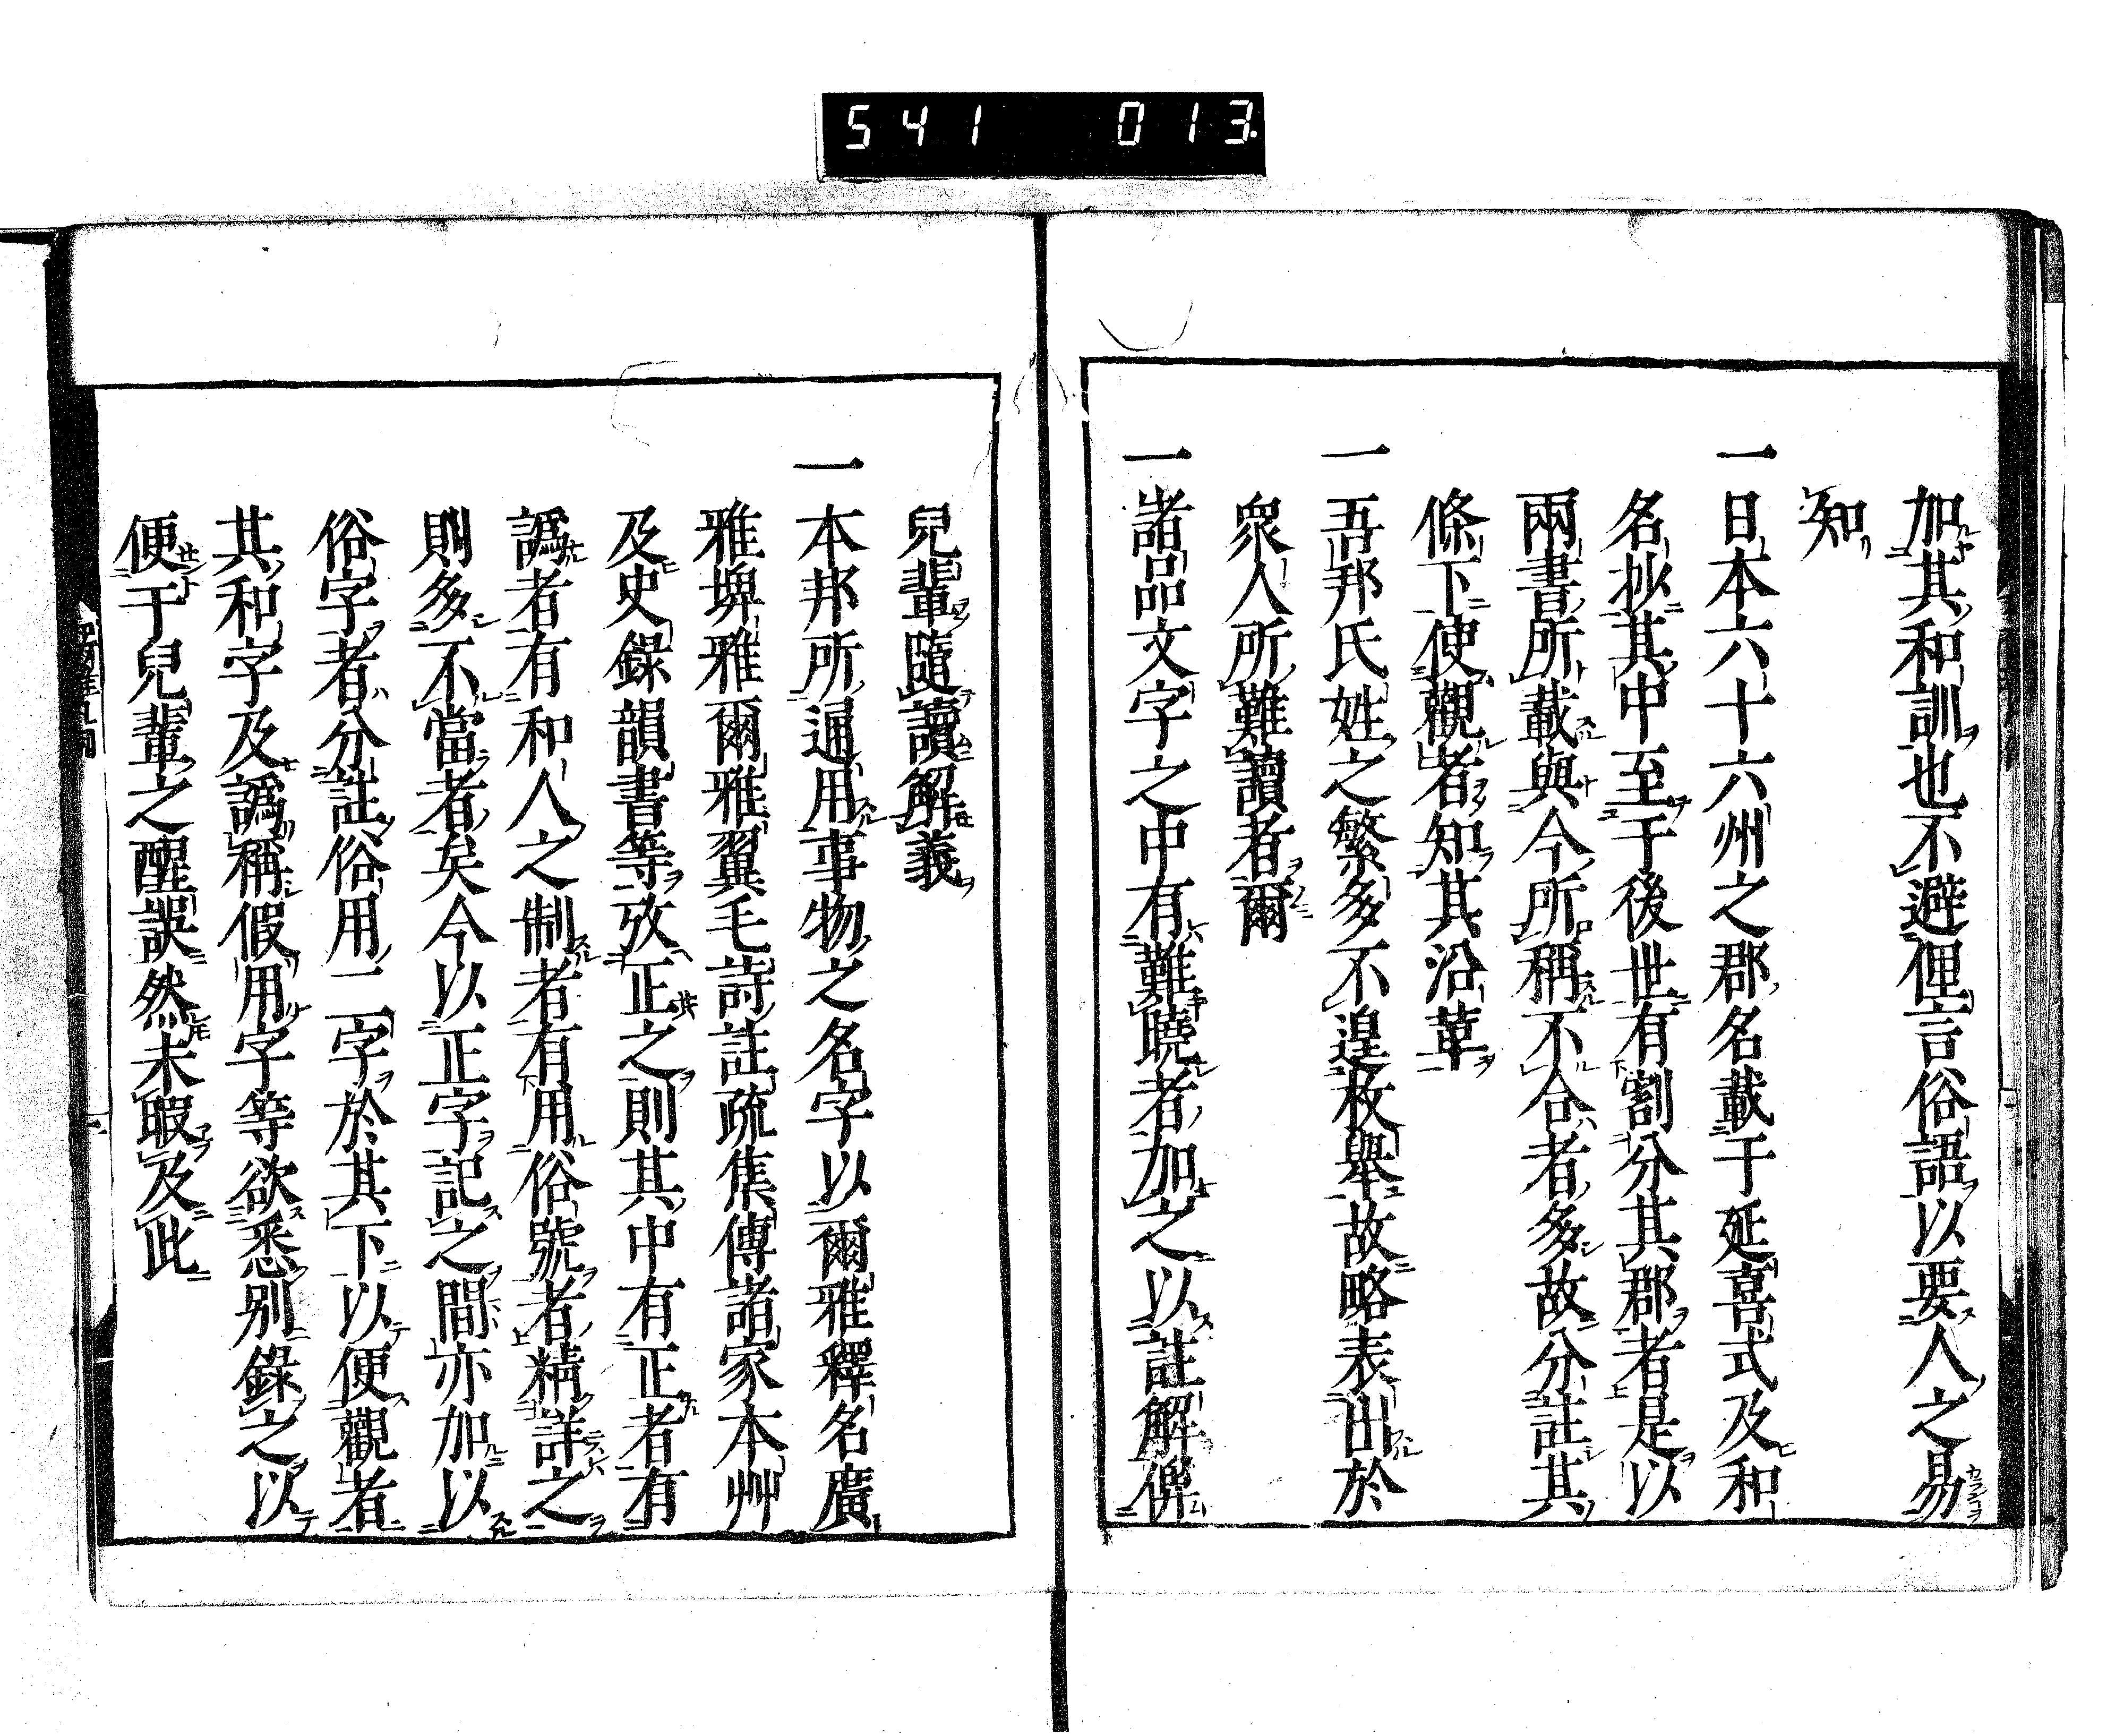 541 013
加其和訓也不避俚言俗語以要人之易
知
一日本六十六州之郡名載于延喜式及和
名抄其中至于後世有割分其郡者是以
兩書所載與今所稱不合者多故分註其
條下使觀者知其沿革
一吾邦氏姓之繁多不遑枚舉故略表出於
衆人所難讀者爾
一諸品文字之中有難曉者加之以註解俾
兒輩隨讀解義
一本邦所通用事物之名字以爾雅釋名廣
雅埤雅爾雅翼毛詩註疏焦傳諸家本艸
及史錄韻書等攷正之則其中有正者有
譌者有和人之制者有用俗號者精詳之
則多不當者矣今以正字記之間亦加以
俗字者分註俗用二字於其下以便觀者
其和字及譌稱假用字等欲悉別錄之以
便于兒輩之醒誤然未暇及此